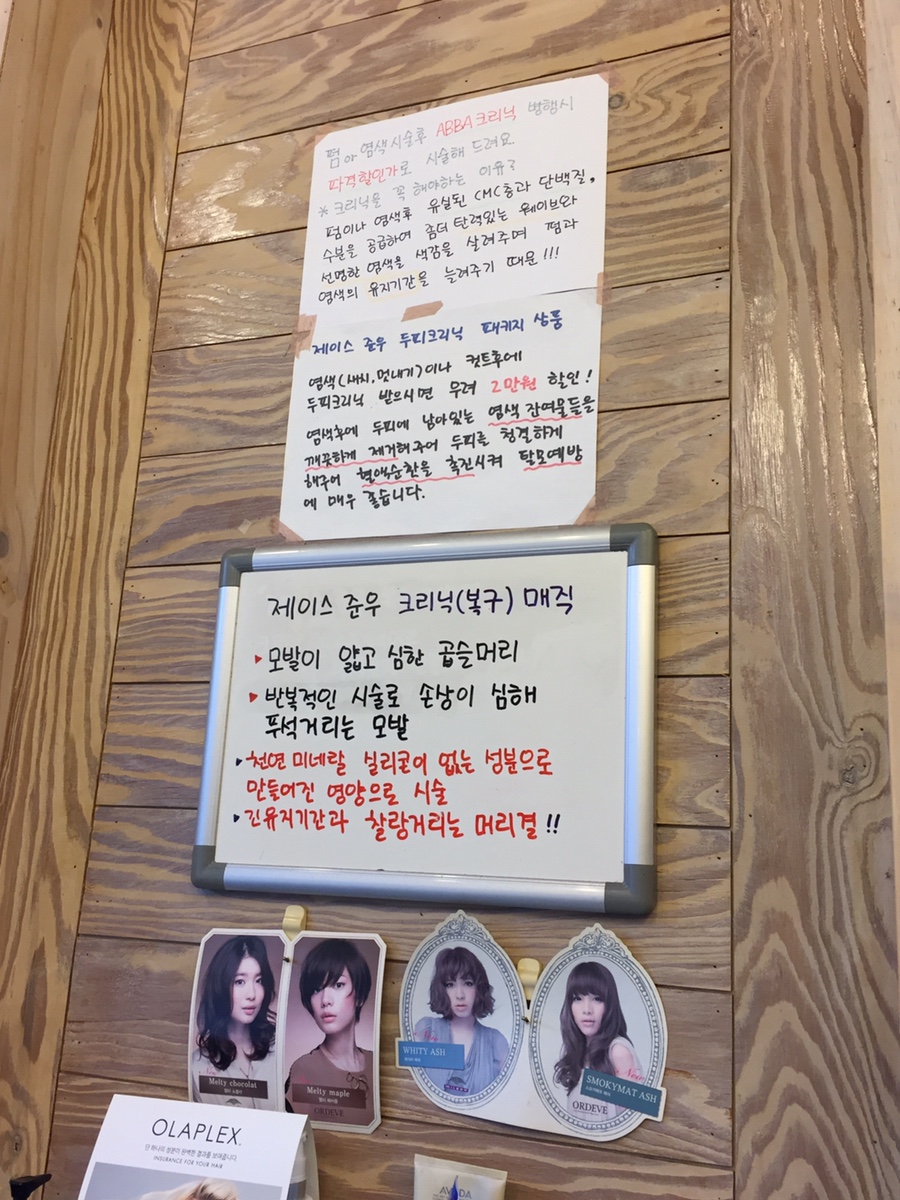 펌 or 염색시술후 ABBA크리닉 병행시
파격할인가로 시술해 드려요.
※ 크리닉을 꼭 해야하는 이유?
펌이나 염색후 유실된 CMC층과 단백질,
수분을 공급하여 좀더 탄력있는 웨이브와
선명한 염색을 색감을 살려주며 펌과
염색의 유지기간을 늘려주기 때문!!!
제이스 준우 두피크리닉 패키지 상품
염색(새치,멋내기)이나 컷트후에
두피크리닉 받으시면 무려 2만원 할인!
염색후에 두피에 남아있는 염색 잔여물들을
깨끗하게 제거해주어 두피를 청결하게
해주어 혈액순환을 촉진시켜 탈모예방
에 매우 좋습니다.
제이스 준우 크리닉(복구) 매직
▸모발이 얇고 심한 곱슬머리
▸반복적인 시술로 손상이 심해
푸석거리는 모발
▸천연미네랄 실리콘이 없는 성분으로
만들어진 영양으로 시술
▸긴유지기간과 찰랑거리는 머리결!!
Melty chocolat
Melty maple
ORDEVE
WHITY ASH
SMOKYMAT ASH
ORDEVE
OLAPLEX.
단 하나의 성분이 완벽한 결과를 보여줍니다.
INSURANCE FOR YOUR HAIR
AVEDA